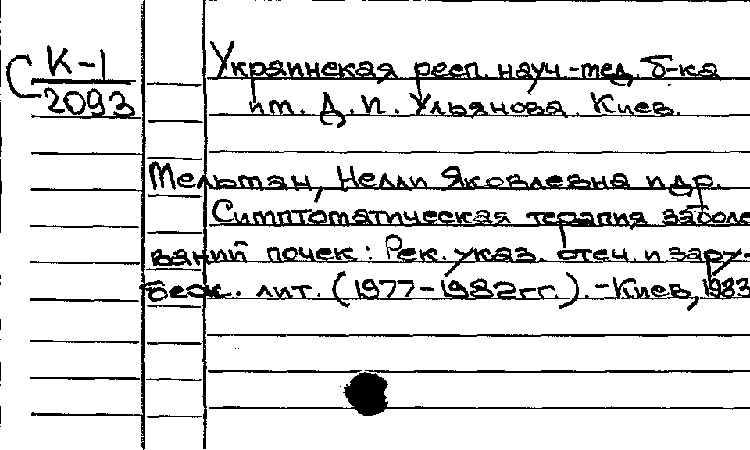 К-1
2093
Украинская респ. науч.-мед. б-ка
им. Д. И. Ульянова. Киев.
Мельман, Нелли Яковлевна и др.
Симптоматическая терапия заболе
ваний почек: Рек. указ. отеч. и зару-
беж. лит. (1977-1982гг.). - Киев, 1983